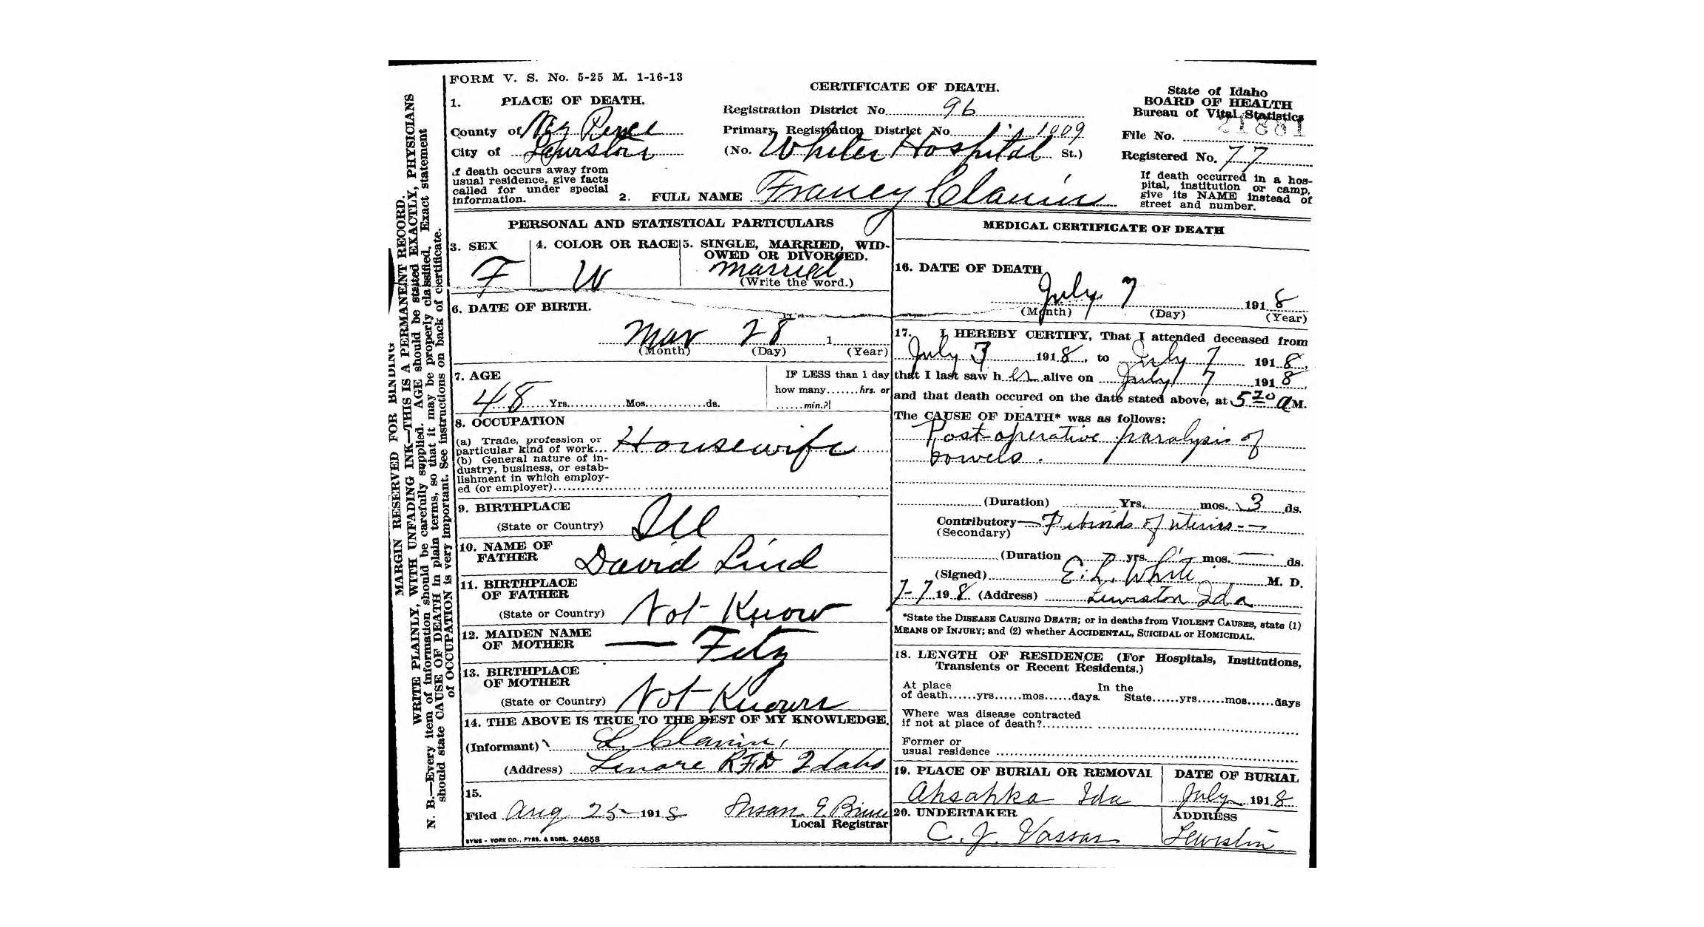 FORM V. S. No. 5-25 M. 1-16-13
CERTIFICATE OF DEATH.
State of Idaho
BOARD OF HEALTH
Bureau of Vital Statistics
File No. 21881
Registered No. 77
If death occurred in a hos-
pital, institution or camp,
give its NAME instead of
street and number.
1. PLACE OF DEATH.
County of Nez Perce
City of Lewiston
If death occurs away from
usual residence, give facts
called for under special
information.
Registration District No. 96
Primary Registration District No. 1009
(No. Whites Hospital St.)
2. FULL NAME Francy Clanin
PERSONAL AND STATISTICAL PARTICULARS
3. SEX
F
4. COLOR OR RACE
W
5. SINGLE, MARRIED, WID-
OWED OR DIVORCED.
married
(Write the word.)
6. DATE OF BIRTH.
Mar 28 1
(Month) (Day) (Year)
7. AGE
48 Yrs. Mos. ds.
IF LESS than 1 day
how many hrs. or
min.?
8. OCCUPATION
(a) Trade, profession or
particular kind of work... Housewife
(b) General nature of in-
dustry, business, or estab-
lishment in which employ-
ed (or employer)
9. BIRTHPLACE
(State or Country) Ill
10. NAME OF
FATHER David Lind
11. BIRTHPLACE
OF FATHER
(State or Country) Not Know
12. MAIDEN NAME
OF MOTHER — Fitz
13. BIRTHPLACE
OF MOTHER
(State or Country) Not Known
14. THE ABOVE IS TRUE TO THE BEST OF MY KNOWLEDGE.
(Informant) L. Clanin
(Address) Lenore RFD Idaho
15.
Filed Aug 25 1918 Susan E Bruce
Local Registrar
SYMS - YORK CO., PTRS. & BDRS. 24658
MEDICAL CERTIFICATE OF DEATH
16. DATE OF DEATH
July 7 1918
(Month) (Day) (Year)
17. I HEREBY CERTIFY, That I attended deceased from
July 3 1918, to July 7 1918,
that I last saw her alive on July 7 1918,
and that death occured on the date stated above, at 5 20 a M.
The CAUSE OF DEATH* was as follows:
Post-operative paralysis of
bowels.
(Duration) Yrs. mos. 3 ds.
Contributory Fibroids of uterus
(Secondary)
(Duration yrs. mos. — ds.
(Signed) E. L. White M. D.
7-7 1918 (Address) Lewiston Ida
*State the DISEASE CAUSING DEATH; or in deaths from VIOLENT CAUSES, state (1)
MEANS OF INJURY; and (2) whether ACCIDENTAL, SUICIDAL or HOMICIDAL.
18. LENGTH OF RESIDENCE (For Hospitals, Institutions,
Transients or Recent Residents.)
At place In the
of death......yrs......mos......days. State......yrs......mos......days
Where was disease contracted
if not at place of death?
Former or
usual residence
19. PLACE OF BURIAL OR REMOVAL
Ahsahka Ida
DATE OF BURIAL
July 1918
20. UNDERTAKER
C. J. Vassar
ADDRESS
Lewiston
MARGIN RESERVED FOR BINDING
WRITE PLAINLY, WITH UNFADING INK—THIS IS A PERMANENT RECORD.
N. B.—Every item of information should be carefully supplied. AGE should be stated EXACTLY, PHYSICIANS
should state CAUSE OF DEATH in plain terms, so that it may be properly classified. Exact statement
of OCCUPATION is very important. See instructions on back of certificate.